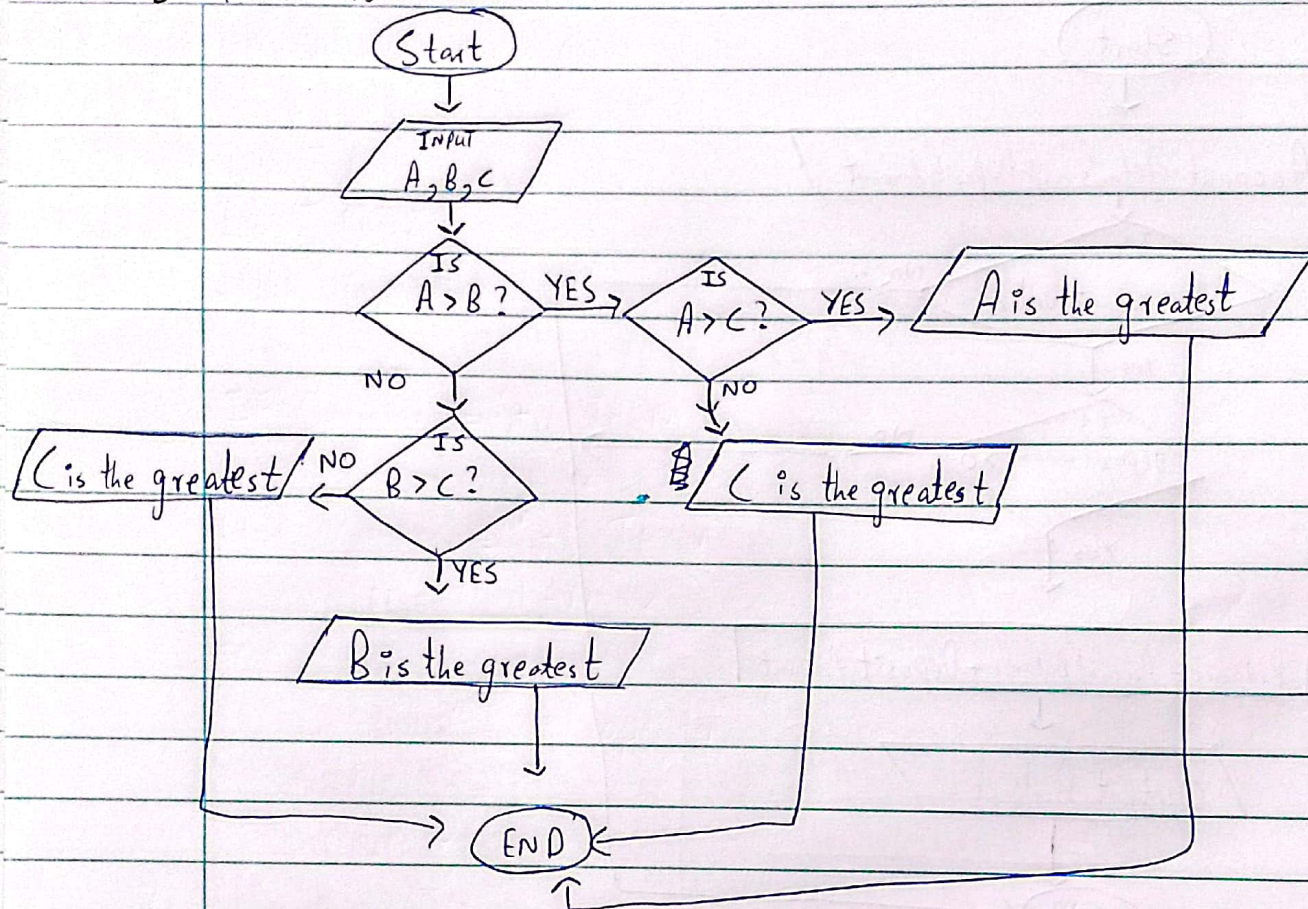 Start
INPUT
A, B, C
IS
A > B ?
YES
IS
A > C ?
YES
A is the greatest
NO
NO
IS
B > C ?
NO
C is the greatest
C is the greatest
YES
B is the greatest
END